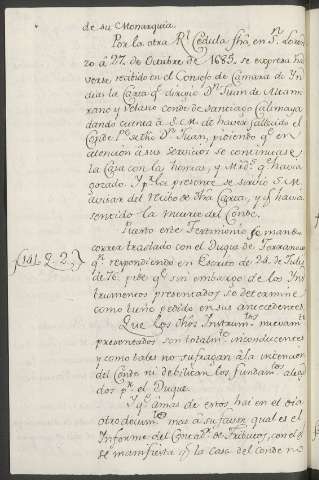 de su Monarquia.
Por la otra Rl Cedula fha, en Sn Loren
zo à 27. de Octubre de 1685. se expresa ha
verse recibido en el Consejo de Camara de Yn
dias la Carta qe dirigiò Dn Juan de Altami
rano y Velasco conde de Santiago Calimaya
dando cuenta à S. M. de haver fallecido el
Conde Pe dho Dn Juan, pidiendo qe en
atencion à sus servicios se continuase à
la Casa con las honras, y Mrds qe havia
gozado. Y pr la presente se sirvio S. M.
avisar del recibo de dha Carta, y qe havia
sentido la muerte del Conde.
Puesto este Testimonio se mandò
correr traslado con el Duque de Terranova
(141. 2. 2.)
qn respondiendo en Escrito de 24. de Julio
de 76. pide qe sin embargo de los Yns
trumentos presentados se determine
como tiene pedido en sus antecedentes
Que los dhos Instrumtos nuevamte
presentados son totalmte inconducentes
y como tales no sufragan à la intencion
del Conde ni debilitan los fundamtos alega
dos pr el Duque.
Y qe à mas de estos hai en el dia
otro mas à su favor qual es el
Informe del Contaor de Tributos, con el qe
se manifiesta qe la casa del conde no